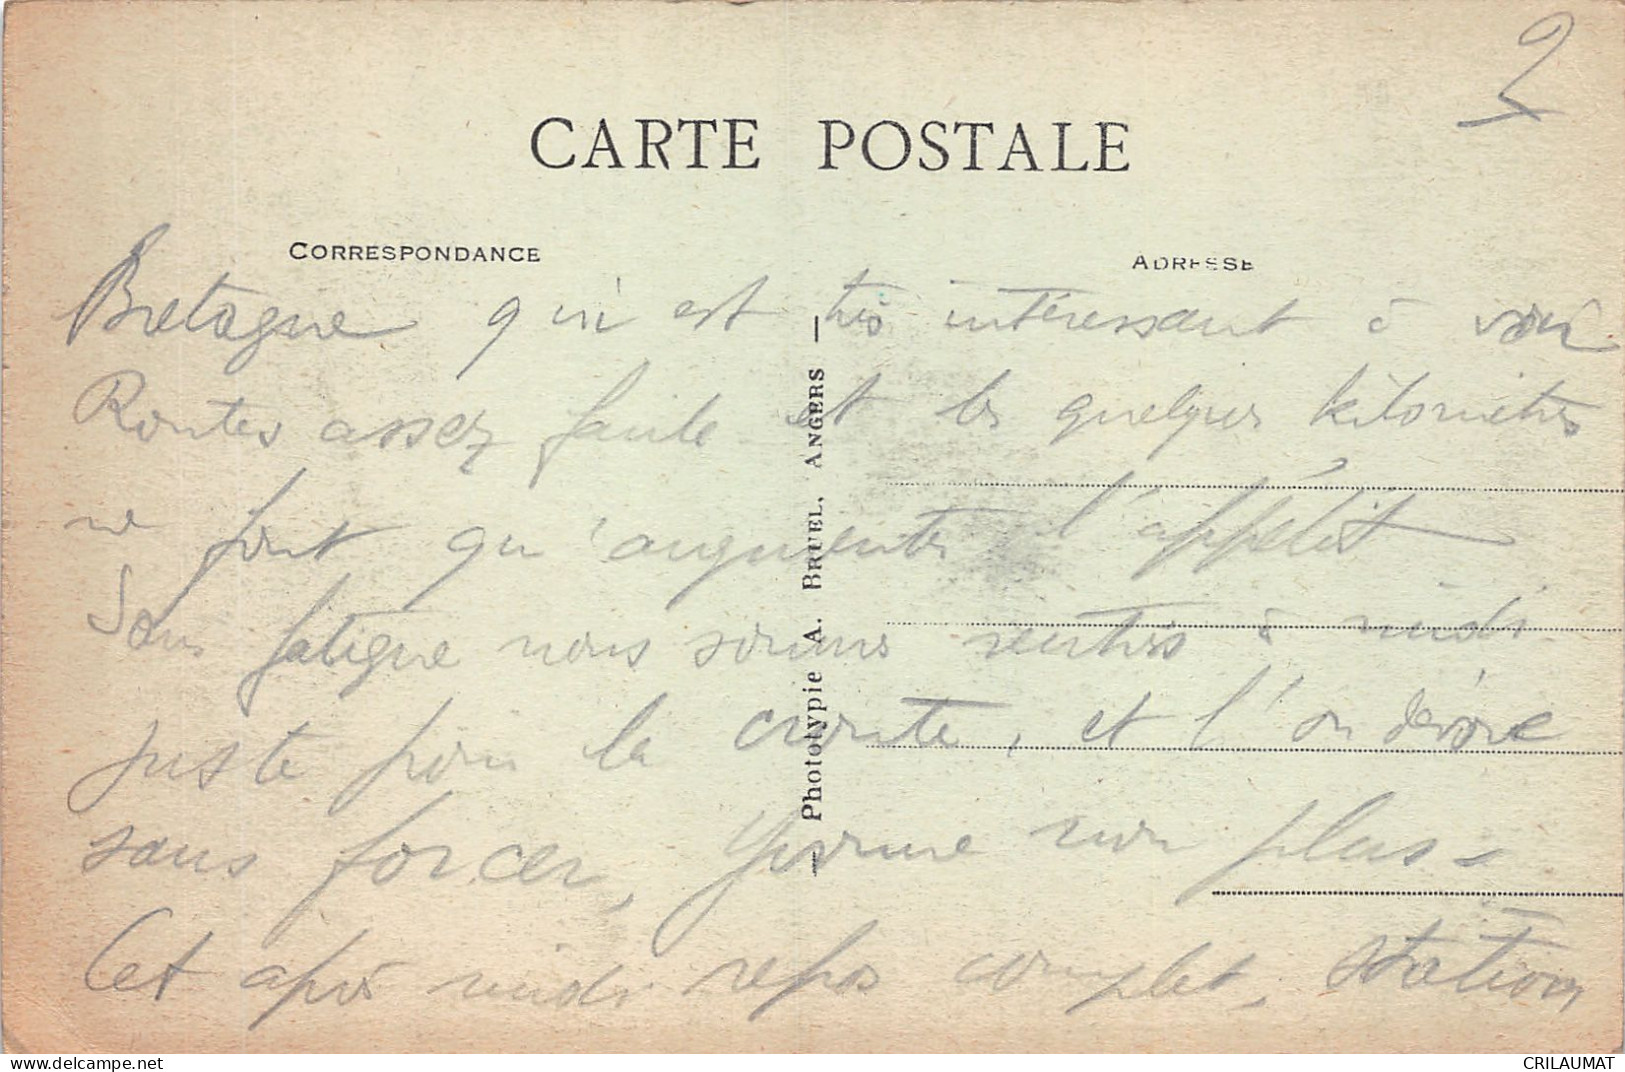 2
CARTE POSTALE
CORRESPONDANCE
ADRESSE
Bretagne qui est très intéressant à voir
Routes assez facile et les quelques kilomètres
ne font qu'augmenter l'appétit
Sans fatigue nous sommes rentrés à midi
juste pour la croute, et l'on dévore
sans forcer, Yvonne non plus.
Cet après midi repos complet, station
— Phototypie A. BRUEL, ANGERS —
www.delcampe.net
CRILAUMAT